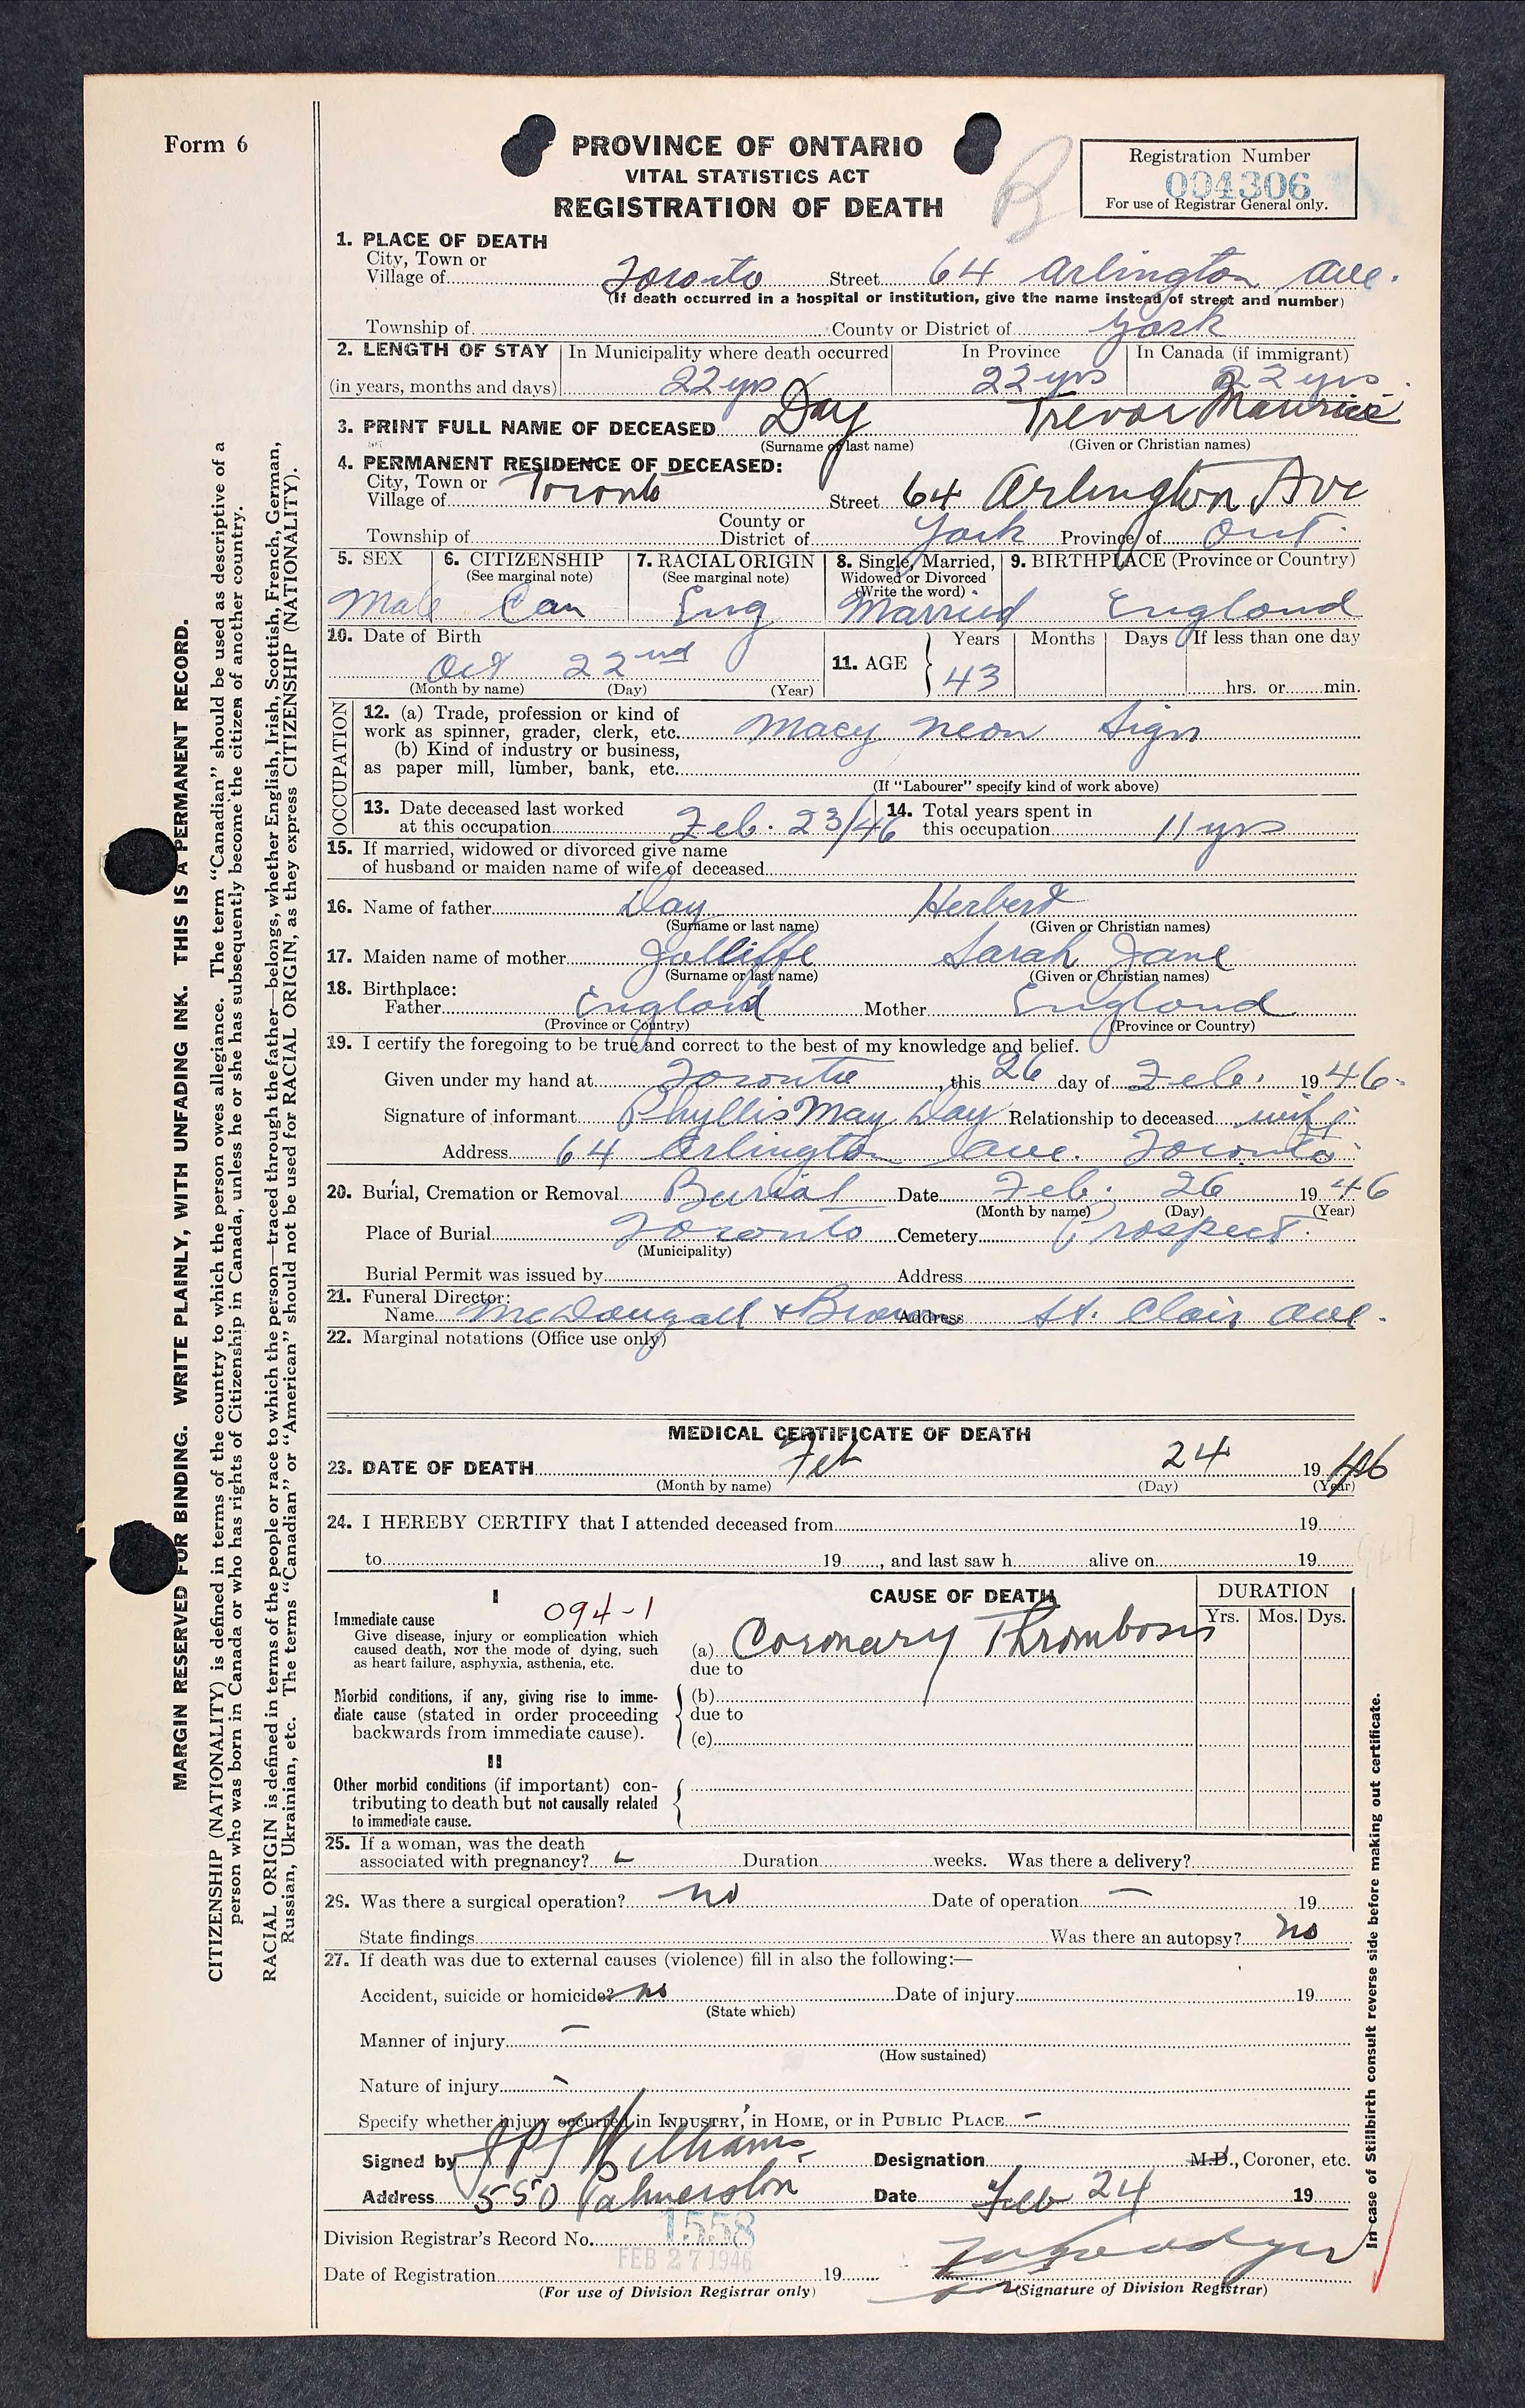 Form 6
PROVINCE OF ONTARIO
VITAL STATISTICS ACT
REGISTRATION OF DEATH
B
Registration Number
004306
For use of Registrar General only.
1. PLACE OF DEATH
City, Town or
Village of Toronto Street 64 Arlington Ave.
(If death occurred in a hospital or institution, give the name instead of street and number)
Township of County or District of York
2. LENGTH OF STAY In Municipality where death occurred In Province In Canada (if immigrant)
(in years, months and days) 22 yrs 22 yrs 22 yrs.
3. PRINT FULL NAME OF DECEASED Day Trevor Maurice
(Surname or last name) (Given or Christian names)
4. PERMANENT RESIDENCE OF DECEASED:
City, Town or
Village of Toronto Street 64 Arlington Ave
Township of County or District of York Province of Ont.
5. SEX 6. CITIZENSHIP 7. RACIAL ORIGIN 8. Single, Married, 9. BIRTHPLACE (Province or Country)
(See marginal note) (See marginal note) Widowed or Divorced
(Write the word)
Male Can Eng Married England
10. Date of Birth 11. AGE Years Months Days If less than one day
Oct 22nd 43 hrs. or min.
(Month by name) (Day) (Year)
OCCUPATION
12. (a) Trade, profession or kind of
work as spinner, grader, clerk, etc. Macy Neon Sign
(b) Kind of industry or business,
as paper mill, lumber, bank, etc.
(If "Labourer" specify kind of work above)
13. Date deceased last worked 14. Total years spent in
at this occupation Feb. 23/46 this occupation 11 yrs
15. If married, widowed or divorced give name
of husband or maiden name of wife of deceased
16. Name of father Day Herbert
(Surname or last name) (Given or Christian names)
17. Maiden name of mother Jolliffe Sarah Jane
(Surname or last name) (Given or Christian names)
18. Birthplace:
Father England Mother England
(Province or Country) (Province or Country)
19. I certify the foregoing to be true and correct to the best of my knowledge and belief.
Given under my hand at Toronto, this 26 day of Feb. 1946.
Signature of informant Phyllis May Day Relationship to deceased wife
Address 64 Arlington Ave. Toronto
20. Burial, Cremation or Removal Burial Date Feb. 26 1946
(Month by name) (Day) (Year)
Place of Burial Toronto Cemetery Prospect.
(Municipality)
Burial Permit was issued by Address
21. Funeral Director:
Name McDougall & Brown Address St. Clair Ave.
22. Marginal notations (Office use only)
MEDICAL CERTIFICATE OF DEATH
23. DATE OF DEATH Feb 24 1946
(Month by name) (Day) (Year)
24. I HEREBY CERTIFY that I attended deceased from 19
to 19, and last saw h alive on 19
I CAUSE OF DEATH DURATION
Yrs. Mos. Dys.
094-1
Immediate cause
Give disease, injury or complication which
caused death, NOT the mode of dying, such
as heart failure, asphyxia, asthenia, etc.
(a) Coronary Thrombosis
due to
Morbid conditions, if any, giving rise to imme-
diate cause (stated in order proceeding
backwards from immediate cause).
(b)
due to
(c)
II
Other morbid conditions (if important) con-
tributing to death but not causally related
to immediate cause.
25. If a woman, was the death
associated with pregnancy? Duration weeks. Was there a delivery?
26. Was there a surgical operation? no Date of operation — 19
State findings Was there an autopsy? no
27. If death was due to external causes (violence) fill in also the following:—
Accident, suicide or homicide? no Date of injury 19
(State which)
Manner of injury —
(How sustained)
Nature of injury -
Specify whether injury occurred in INDUSTRY, in HOME, or in PUBLIC PLACE -
Signed by Williams Designation M.D., Coroner, etc.
Address 550 Palmerston Date Feb 24 19
Division Registrar's Record No. 1558
FEB 27 1946
Date of Registration 19
(For use of Division Registrar only) (Signature of Division Registrar)
MARGIN RESERVED FOR BINDING. WRITE PLAINLY, WITH UNFADING INK. THIS IS A PERMANENT RECORD.
CITIZENSHIP (NATIONALITY) is defined in terms of the country to which the person owes allegiance. The term "Canadian" should be used as descriptive of a
person who was born in Canada or who has rights of Citizenship in Canada, unless he or she has subsequently become the citizen of another country.
RACIAL ORIGIN is defined in terms of the people or race to which the person—traced through the father—belongs, whether English, Irish, Scottish, French, German,
Russian, Ukrainian, etc. The terms "Canadian" or "American" should not be used for RACIAL ORIGIN, as they express CITIZENSHIP (NATIONALITY).
In case of Stillbirth consult reverse side before making out certificate.